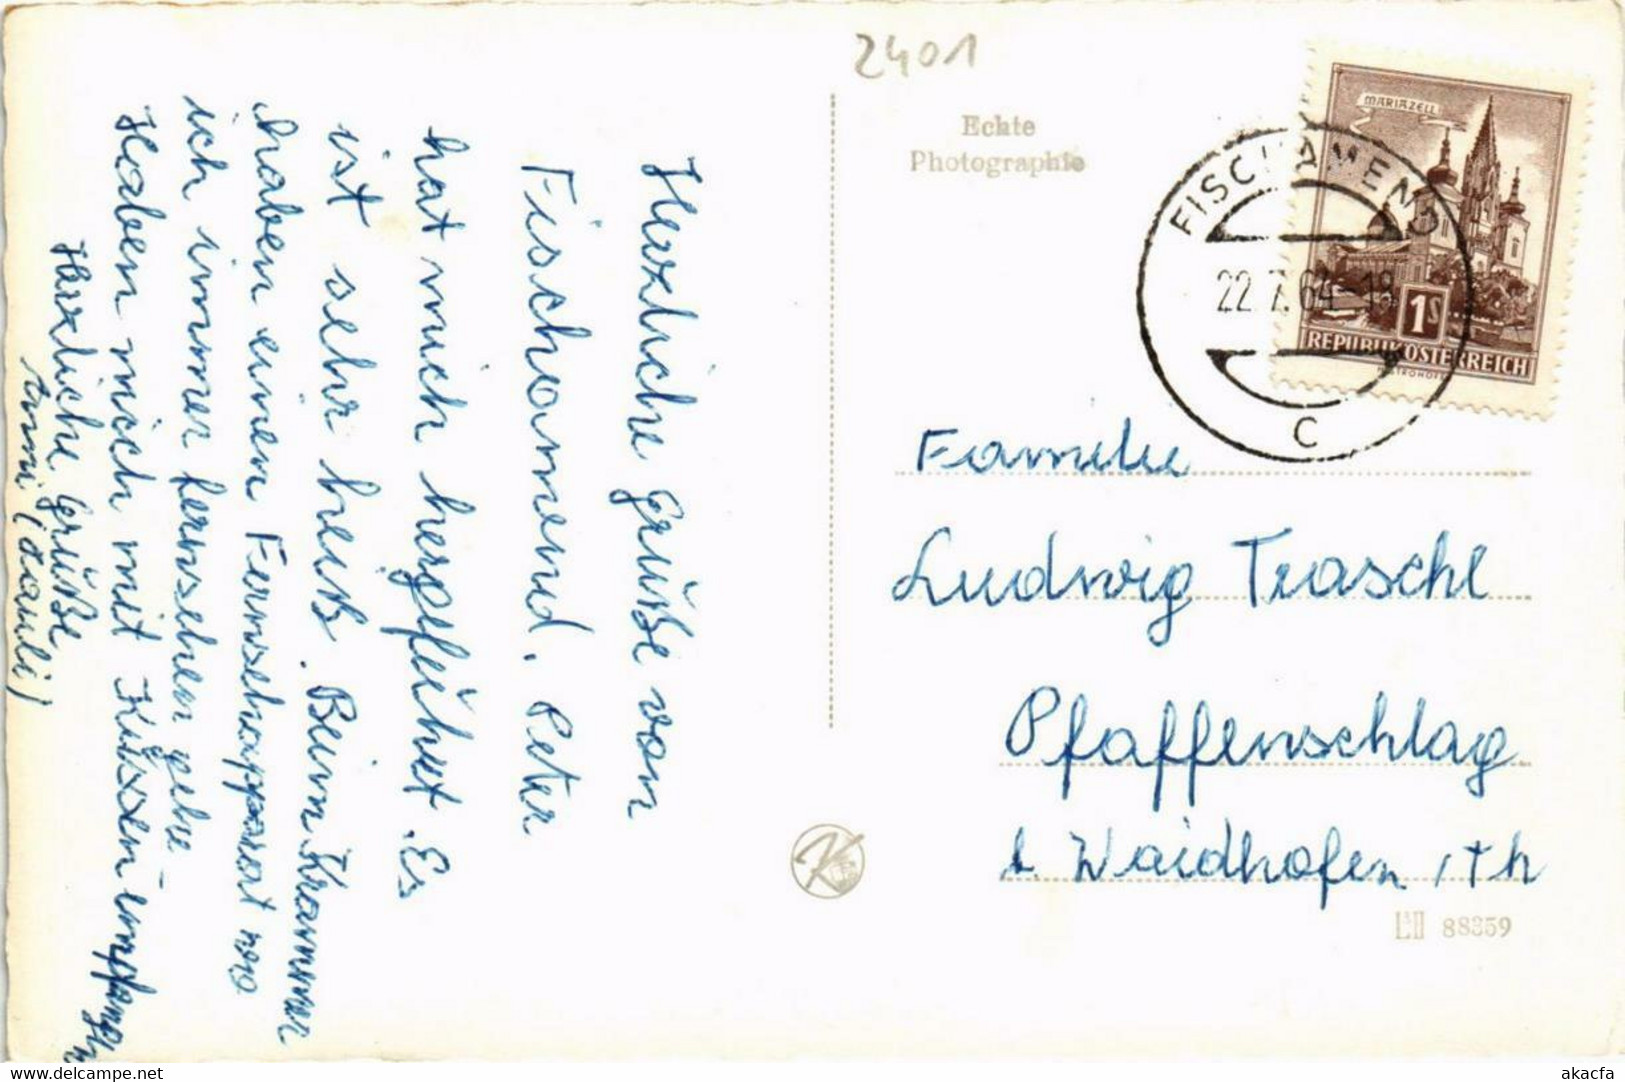 2401
Echte
Photographie
MARIAZELL
1S
REPUBLIK ÖSTERREICH
FISCHAMEND
22.7.64-19
C
Herzliche Grüße von
Fischamend. Peter
hat mich hergeführt. Es
ist sehr heiß. Beim Krammer
haben einen Fernsehapparat wo
ich immer fernsehen gehe
Haben mich mit Küssen
Herzliche Grüße
Familie
Ludwig Traschl
Pfaffenschlag
b Waidhofen /Th
K
88359
delcampe.net
akacfa